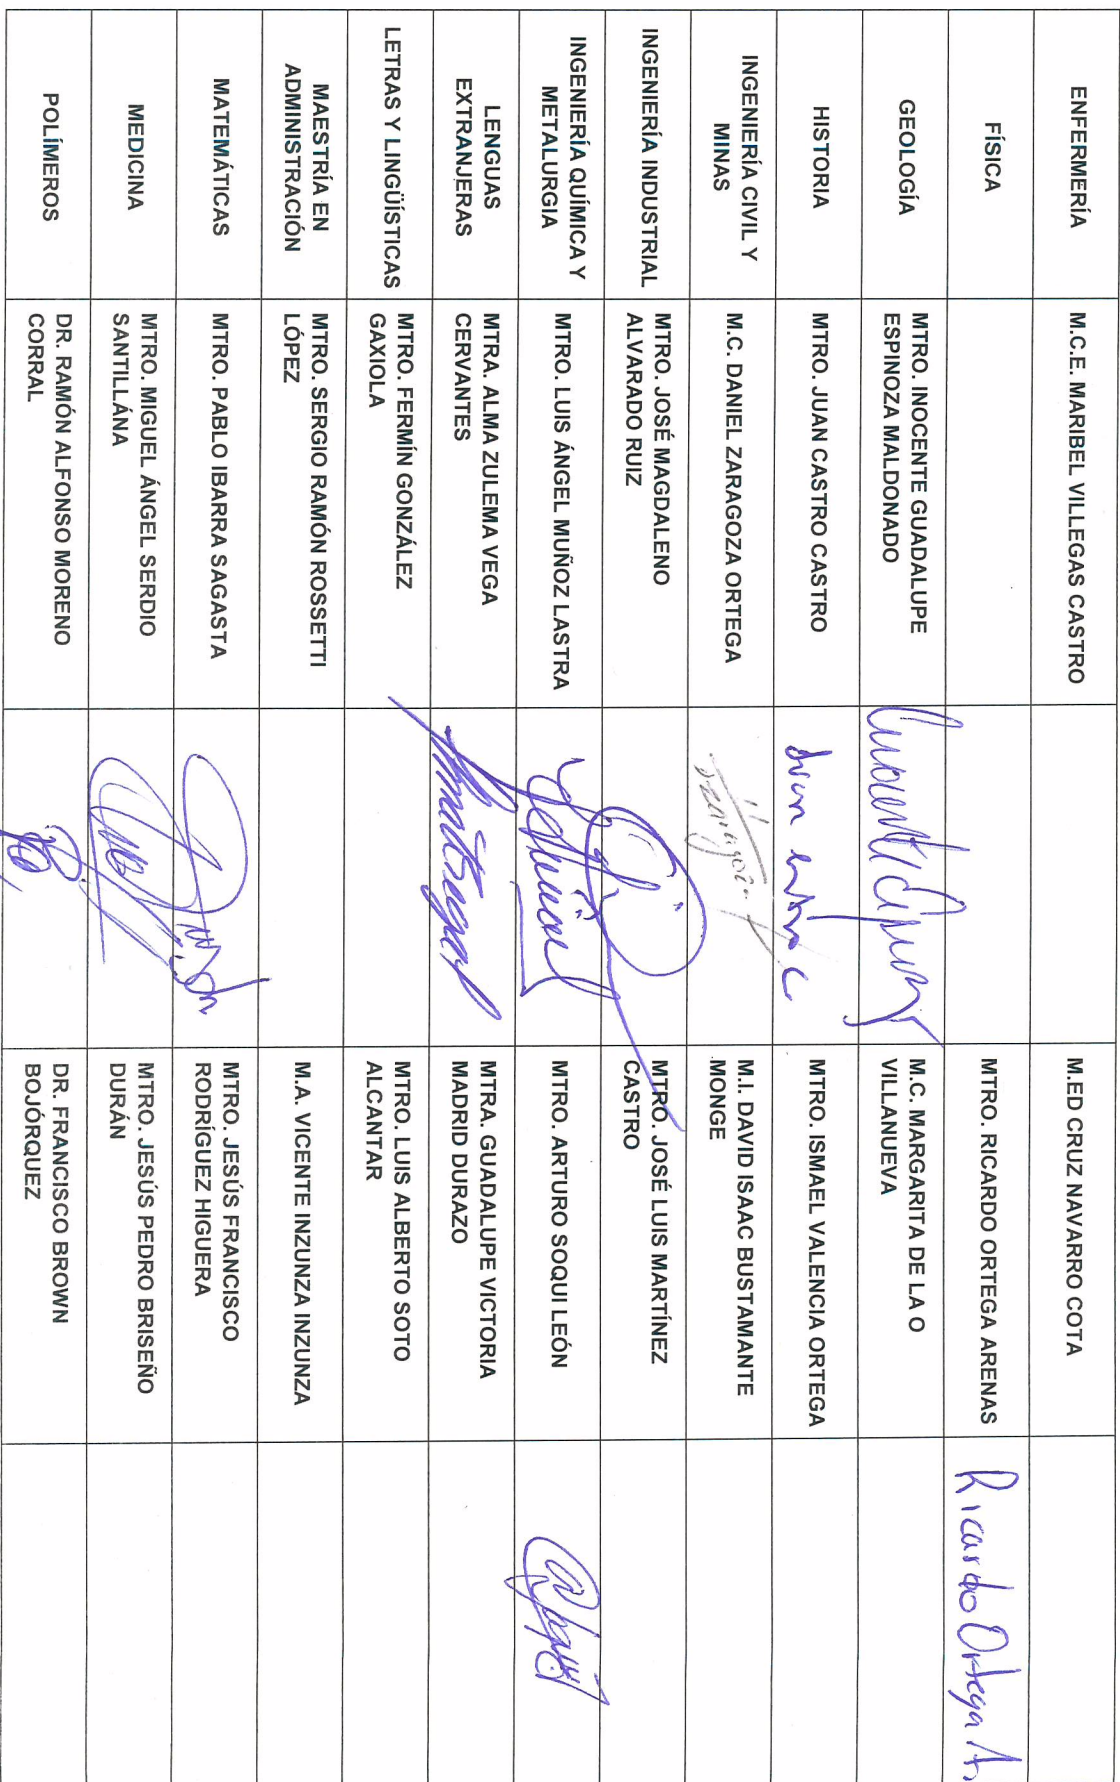 ENFERMERÍA
M.C.E. MARIBEL VILLEGAS CASTRO
M.ED CRUZ NAVARRO COTA
FÍSICA
MTRO. RICARDO ORTEGA ARENAS
Ricardo Ortega A.
GEOLOGÍA
MTRO. INOCENTE GUADALUPE
ESPINOZA MALDONADO
M.C. MARGARITA DE LA O
VILLANUEVA
HISTORIA
MTRO. JUAN CASTRO CASTRO
MTRO. ISMAEL VALENCIA ORTEGA
INGENIERÍA CIVIL Y
MINAS
M.C. DANIEL ZARAGOZA ORTEGA
M.I. DAVID ISAAC BUSTAMANTE
MONGE
INGENIERÍA INDUSTRIAL
MTRO. JOSÉ MAGDALENO
ALVARADO RUIZ
MTRO. JOSÉ LUIS MARTÍNEZ
CASTRO
INGENIERÍA QUÍMICA Y
METALURGIA
MTRO. LUIS ÁNGEL MUÑOZ LASTRA
MTRO. ARTURO SOQUI LEÓN
LENGUAS
EXTRANJERAS
MTRA. ALMA ZULEMA VEGA
CERVANTES
MTRA. GUADALUPE VICTORIA
MADRID DURAZO
LETRAS Y LINGÜÍSTICAS
MTRO. FERMÍN GONZÁLEZ
GAXIOLA
MTRO. LUIS ALBERTO SOTO
ALCANTAR
MAESTRÍA EN
ADMINISTRACIÓN
MTRO. SERGIO RAMÓN ROSSETTI
LÓPEZ
M.A. VICENTE INZUNZA INZUNZA
MATEMÁTICAS
MTRO. PABLO IBARRA SAGASTA
MTRO. JESÚS FRANCISCO
RODRÍGUEZ HIGUERA
MEDICINA
MTRO. MIGUEL ÁNGEL SERDIO
SANTILLÁNA
MTRO. JESÚS PEDRO BRISEÑO
DURÁN
POLÍMEROS
DR. RAMÓN ALFONSO MORENO
CORRAL
DR. FRANCISCO BROWN
BOJÓRQUEZ